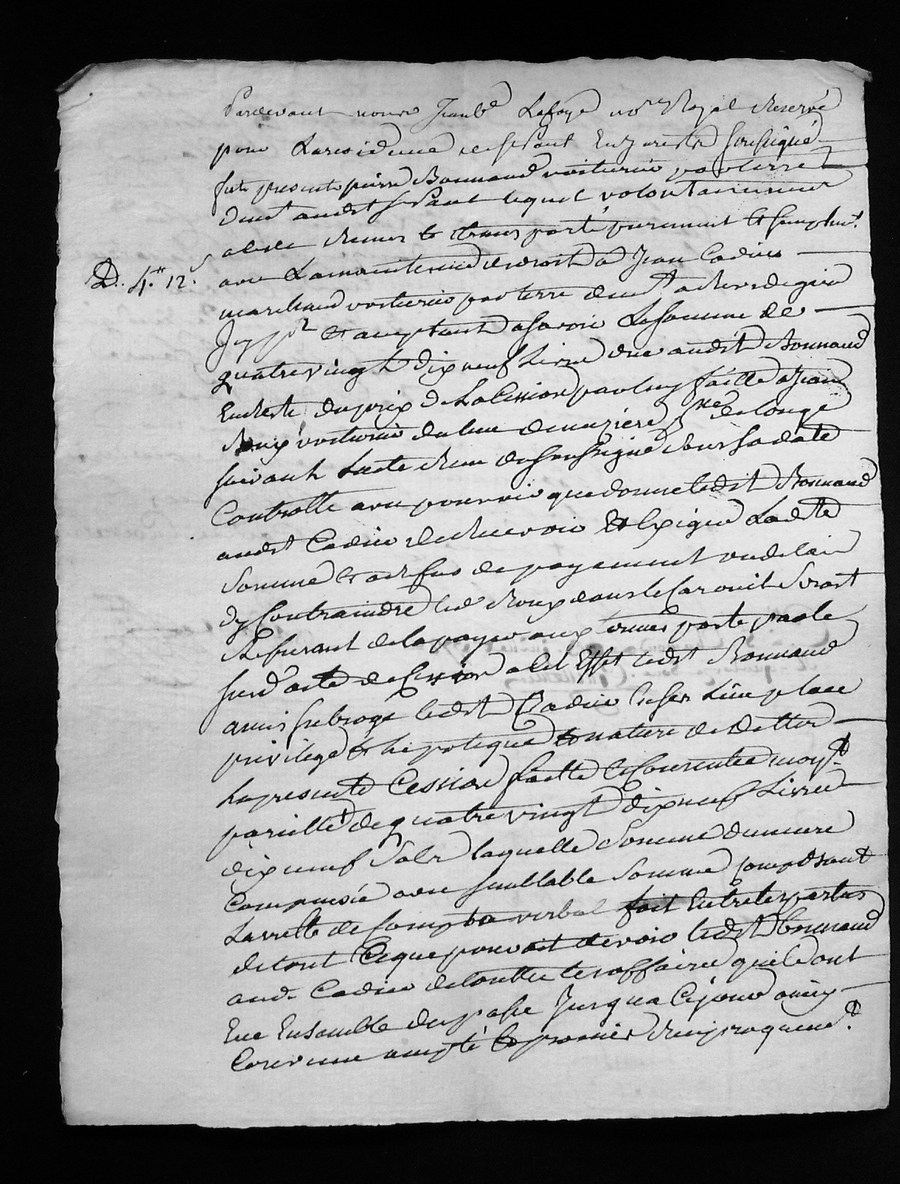 Pardevant nous Jean Bte Lafaye nore Royal Reservé
pour La residence de soussigné
fut present pierre Bonnaud voiturier par terre
dem.t audt lequel volontairement
a cedé Remis et transporté purement et simplem.t
D. 4.tt 12.s
avec La maintenue de droit a Jean Cadier
marchand voiturier par terre dem.t
Icy p.nt et aceptant a savoir La somme de
quatre vingt dix neuf Livre due audit Bonnaud
En Reste du prix de La Cession par luy faitte a Jean
Roux voiturier du lieu de
suivant Lacte Reçu du soussigné sous sa date
Controllé avec pouvoir que donne ledit Bonnaud
audt Cadier de Recevoir et Exiger Ladte
somme et a Refus de payement ou delaie
dy Contraindre led Roux dans le Cas ou il seroit
Refusant de la payer aux termes porté par le
susd acte de Cession a Cet Effet ledit Bonnaud
a mis subrogé ledit Cadier En son Lieu place
privilege et hipoteque et nature de dettes
La presente Cession faitte et Consentie moy.t
pareille de quatre vingt dix neuf Livre
dix neuf sols laquelle somme demeure
Compensée avec semblable somme Composant
Larrette de Compte verbal fait Entre les parties
de tout Ce que pouvoit devoir ledit Bonnaud
aud. Cadier de toutte les affaire quils ont
Eue Ensemble du passé Jusqua Ce jour ainsy
Convenu accepté et promis Reciproquem.t